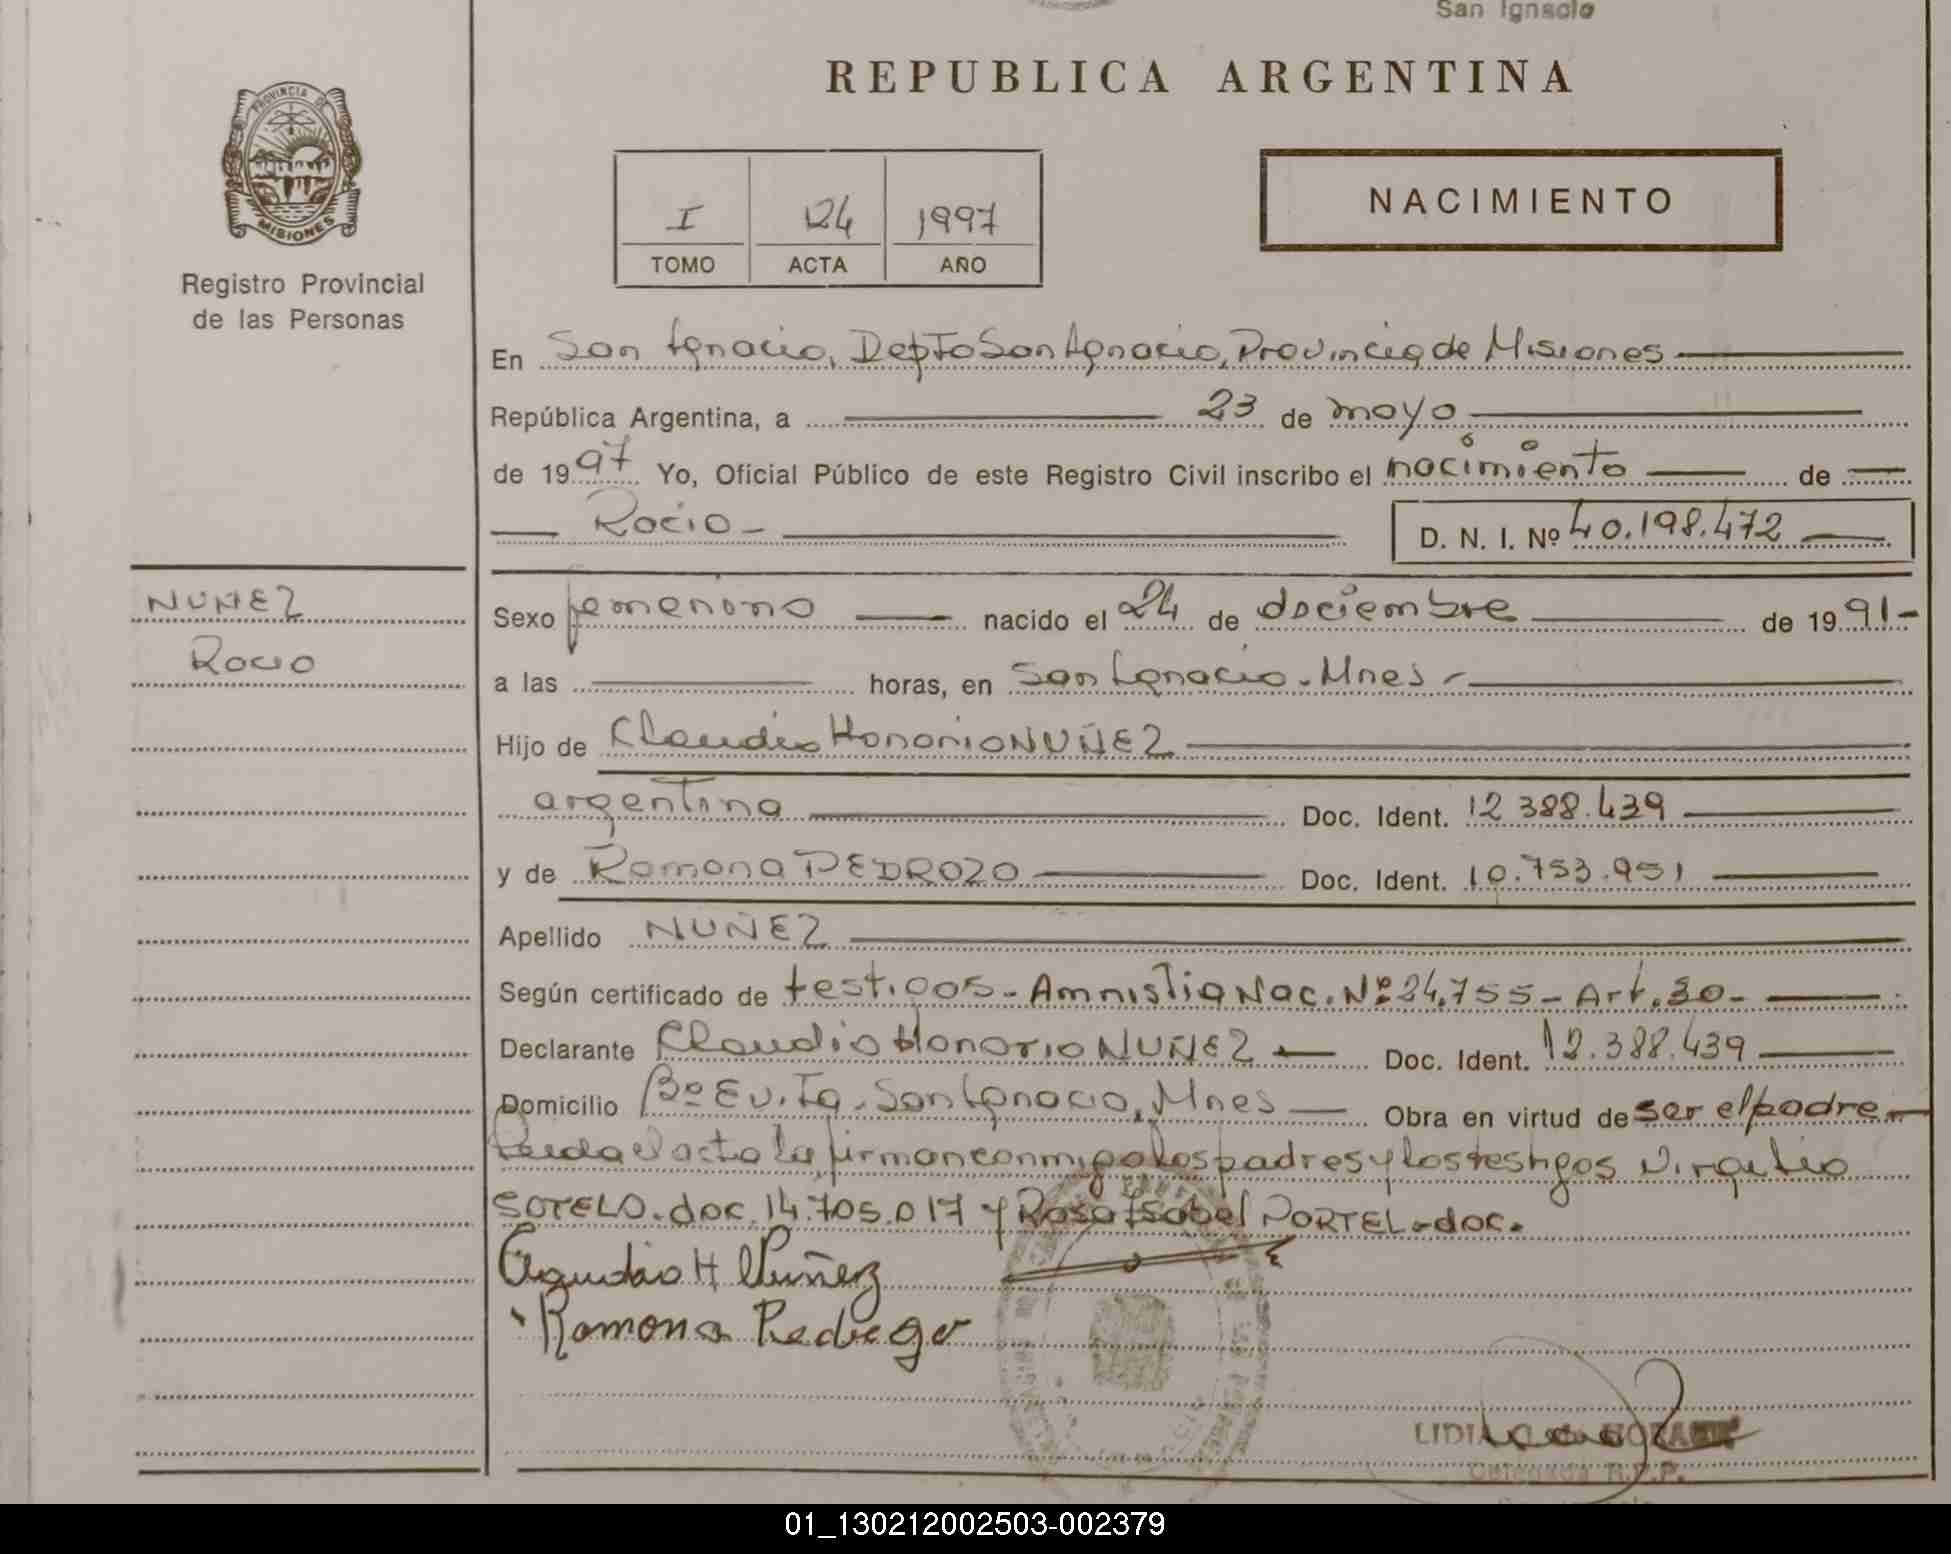 San Ignacio
REPUBLICA ARGENTINA
PROVINCIA DE
MISIONES
Registro Provincial
de las Personas
I 124 1997
TOMO ACTA AÑO
NACIMIENTO
En San Ignacio, DepTo San Ignacio, Provincia de Misiones
República Argentina, a 23 de mayo
de 1997 Yo, Oficial Público de este Registro Civil inscribo el nacimiento de
Rocio - D. N. I. Nº 40.198.472
NUÑEZ
Rocio
Sexo femenino nacido el 24 de diciembre de 1991-
a las horas, en San Ignacio - Mnes -
Hijo de Claudio Honorio NUÑEZ
argentina Doc. Ident. 12.388.439
y de Ramona PEDROZO Doc. Ident. 10.753.951
Apellido NUÑEZ
Según certificado de testigos - Amnistia Nac. Nº 24.755 - Art. 30 -
Declarante Claudio Honorio NUÑEZ Doc. Ident. 12.388.439
Domicilio Bº Ev. Ta. San Ignacio, Mnes Obra en virtud de ser el padre
Leida el acta la firman conmigo los padres y los testigos Virgilio
SOTELO - doc. 14.705.017 y Rosa Isabel PORTEL - doc.
Claudio H Nuñez
Ramona
Delegada R.P.P.
01_130212002503-002379